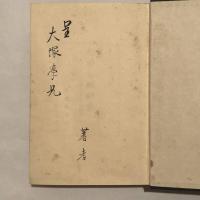 呈
大塚學兄
著者